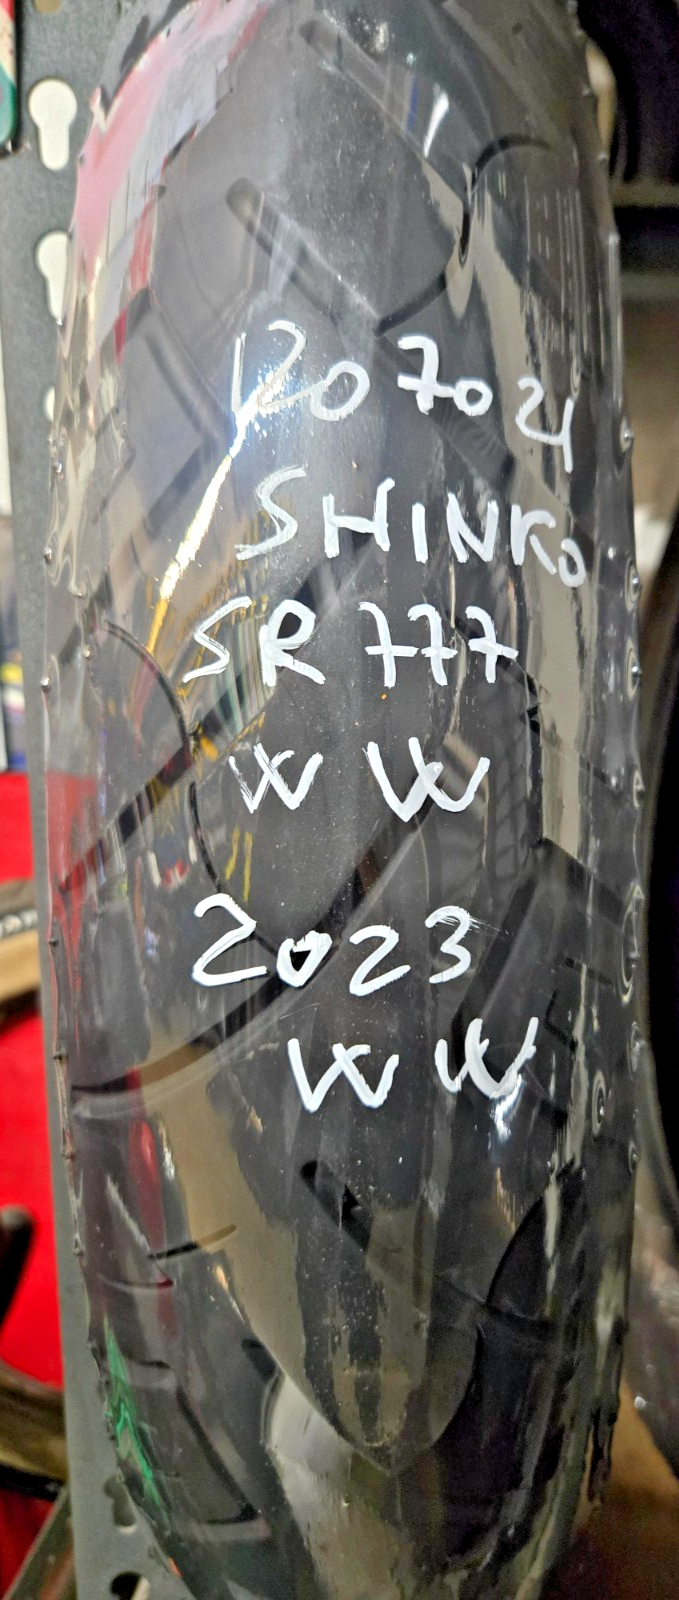 120 70 21
SHINKO
SR 777
W W
2023
W W